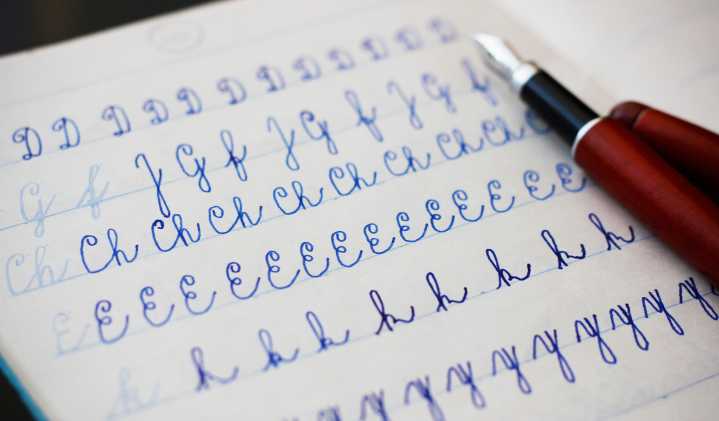 D D D D D D D D D D D D
G f J G f J G f J G f
Ch Ch Ch Ch Ch Ch Ch Ch Ch
E E E E E E E E E E E E E E E
k k k k k k k k k
y y y y y y y y y